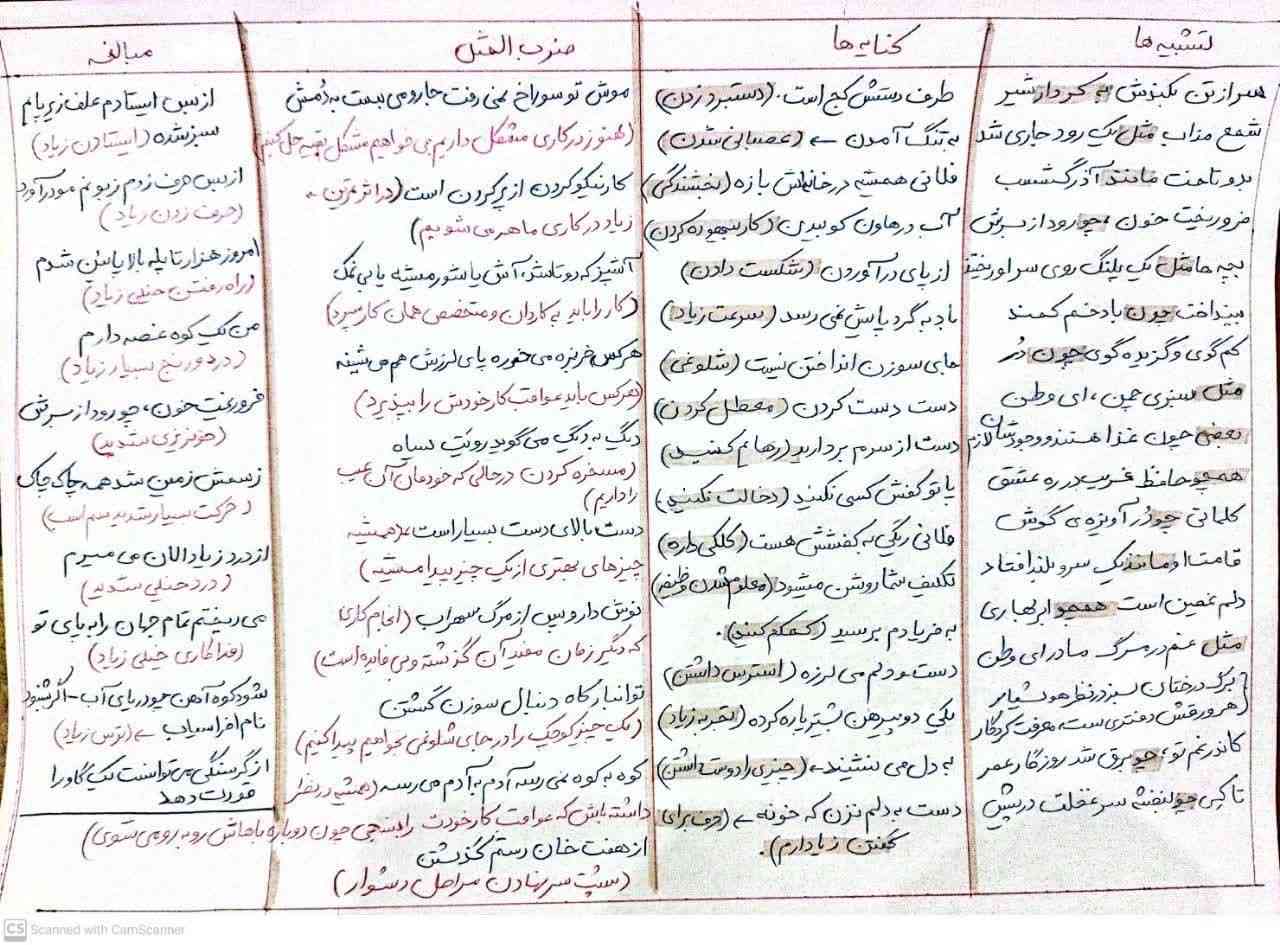 تشبیه ها
سر از تن بکندش به کردار شیر
شمع مزاب مثل یک رود جاری شد
بدو تاخت مانند آذرگشسب
فرو ریخت خون، چو رود از سرش
بچه ها مثل یک پلنگ روی سر او
بینداخت چون باد خم کمند
کم گوی و گزیده گوی چون دُر
مثل سبزی چمن، ای وطن
بعضی چون غذا هستند و وجودشان لازم
همچو حافظ غریب در ره عشق
کلماتی چو دُر آویزه ی گوش
قامت او مانند یک سرو بلند افتاد
دلم غمین است همچو ابر بهاری
مثل غم در مرگ مادر ای وطن
برگ درختان سبز در نظر هوشیار
هر ورقش دفتری ست، معرفت کردگار
کاندر غم تو، چو برق شد روزگار عمر
تا کی چو بنفشه سر غفلت در پیش
کنایه ها
طرف دستش کج است. (دستبرد زدن)
به تنگ آمدن ← (عصبانی شدن)
فلانی همیشه در خانه اش بازه (بخشندگی)
آب در هاون کوبیدن (کار بیهوده کردن)
از پای در آوردن (شکست دادن)
باد به گرد پایش نمی رسد (سرعت زیاد)
جای سوزن انداختن نیست (شلوغی)
دست دست کردن (معطل کردن)
دست از سرم بردارید (رهایم کنید)
پا تو کفش کسی نکنید (دخالت نکنید)
فلانی ریگی به کفشش هست (کلکی داره)
تکلیف شما روشن میشود (معلوم شدن وظیفه)
به فریادم برسید (کمکم کنید).
دست و دلم می لرزه (استرس داشتن)
یکی دو پیرهن بیشتر پاره کرده (تجربه زیاد)
به دل می نشیند ← (چیزی را دوست داشتن)
دست به دلم نزن که خونه ← (حرف برای
گفتن زیاد دارم).
ضرب المثل
موش تو سوراخ نمی رفت جارو می بست به دُمش
(هنوز در کاری مشکل داریم می خواهیم مشکل بقیه حل کنیم)
کار نیکو کردن از پر کردن است (در اثر تمرین
زیاد در کاری ماهر می شویم)
آشپز که دو تا شد، آش یا شور میشه یا بی نمک
(کار را باید به کاردان و متخصص همان کار سپرد)
هرکس خربزه می خوره پای لرزش هم می شینه
(هرکس باید عواقب کار خودش را بپذیرد)
دیگ به دیگ می گوید رویت سیاه
(مسخره کردن در حالی که خودمان آن عیب
را داریم)
دست بالای دست بسیار است (همیشه
چیزهای بهتری از یک چیز پیدا میشه)
نوش دارو پس از مرگ سهراب (انجام کاری
که دیگر زمان مفید آن گذشته و بی فایده است)
تو انبار کاه دنبال سوزن گشتن
(یک چیز کوچک را در جای شلوغی بخواهیم پیدا کنیم)
کوه به کوه نمی رسه آدم به آدم می رسه (همیشه در نظر
داشته باش که عواقب کار خودت را بسنجی چون دوباره باهاش روبه رو می شوی)
از هفت خان رستم گذشتن
(پشت سر نهادن مراحل دشوار)
مبالغه
از بس ایستادم علف زیر پایم
سبز شده (ایستادن زیاد)
از بس حرف زدم زبونم مو درآورد
(حرف زدن زیاد)
امروز هزار تا پله بالا پایین شدم
(راه رفتن خیلی زیاد)
من یک کوه غصه دارم
(درد و رنج بسیار زیاد)
فرو ریخت خون، چو رود از سرش
(خونریزی شدید)
ز سمش زمین شد همه چاک چاک
(حرکت بسیار شدید سم اسب)
از درد زیاد الان می میرم
(درد خیلی شدید)
می ریختم تمام جهان را به پای تو
(فداکاری خیلی زیاد)
شود کوه آهن چو دریای آب - اگر بشنود
نام افراسیاب ← (ترس زیاد)
از گرسنگی می توانست یک گاو را
قورت دهد
CS Scanned with CamScanner